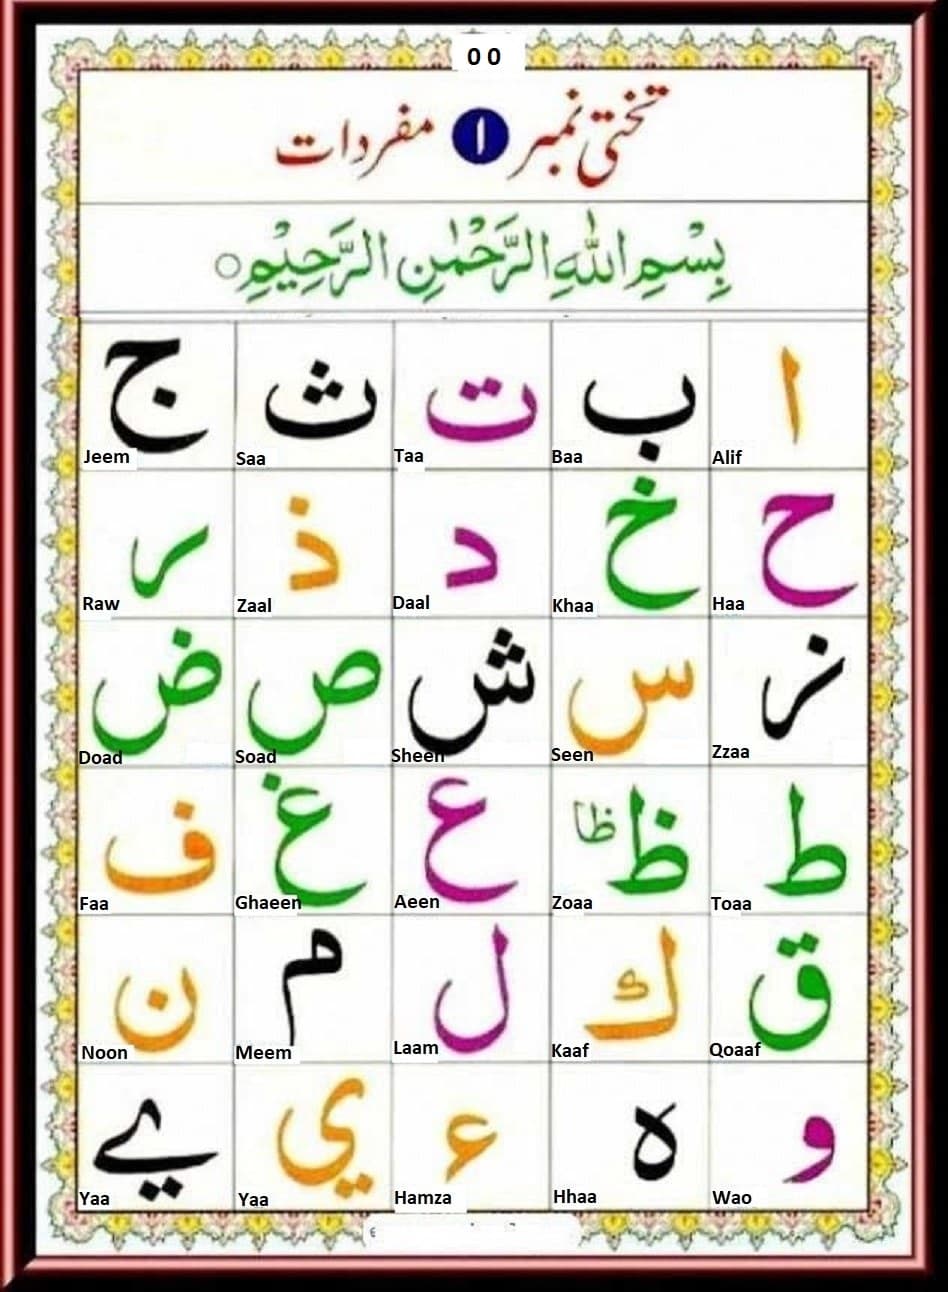 0 0
تختی نمبر ۱ مفردات
بِسْمِ اللّٰهِ الرَّحْمٰنِ الرَّحِيْمِ ○
ا ب ت ث ج
Alif Baa Taa Saa Jeem
ح خ د ذ ر
Haa Khaa Daal Zaal Raw
ز س ش ص ض
Zzaa Seen Sheen Soad Doad
ط ظ ظا ع غ ف
Toaa Zoaa Aeen Ghaeen Faa
ق ك ل م ن
Qoaaf Kaaf Laam Meem Noon
و ه ء ي ے
Wao Hhaa Hamza Yaa Yaa